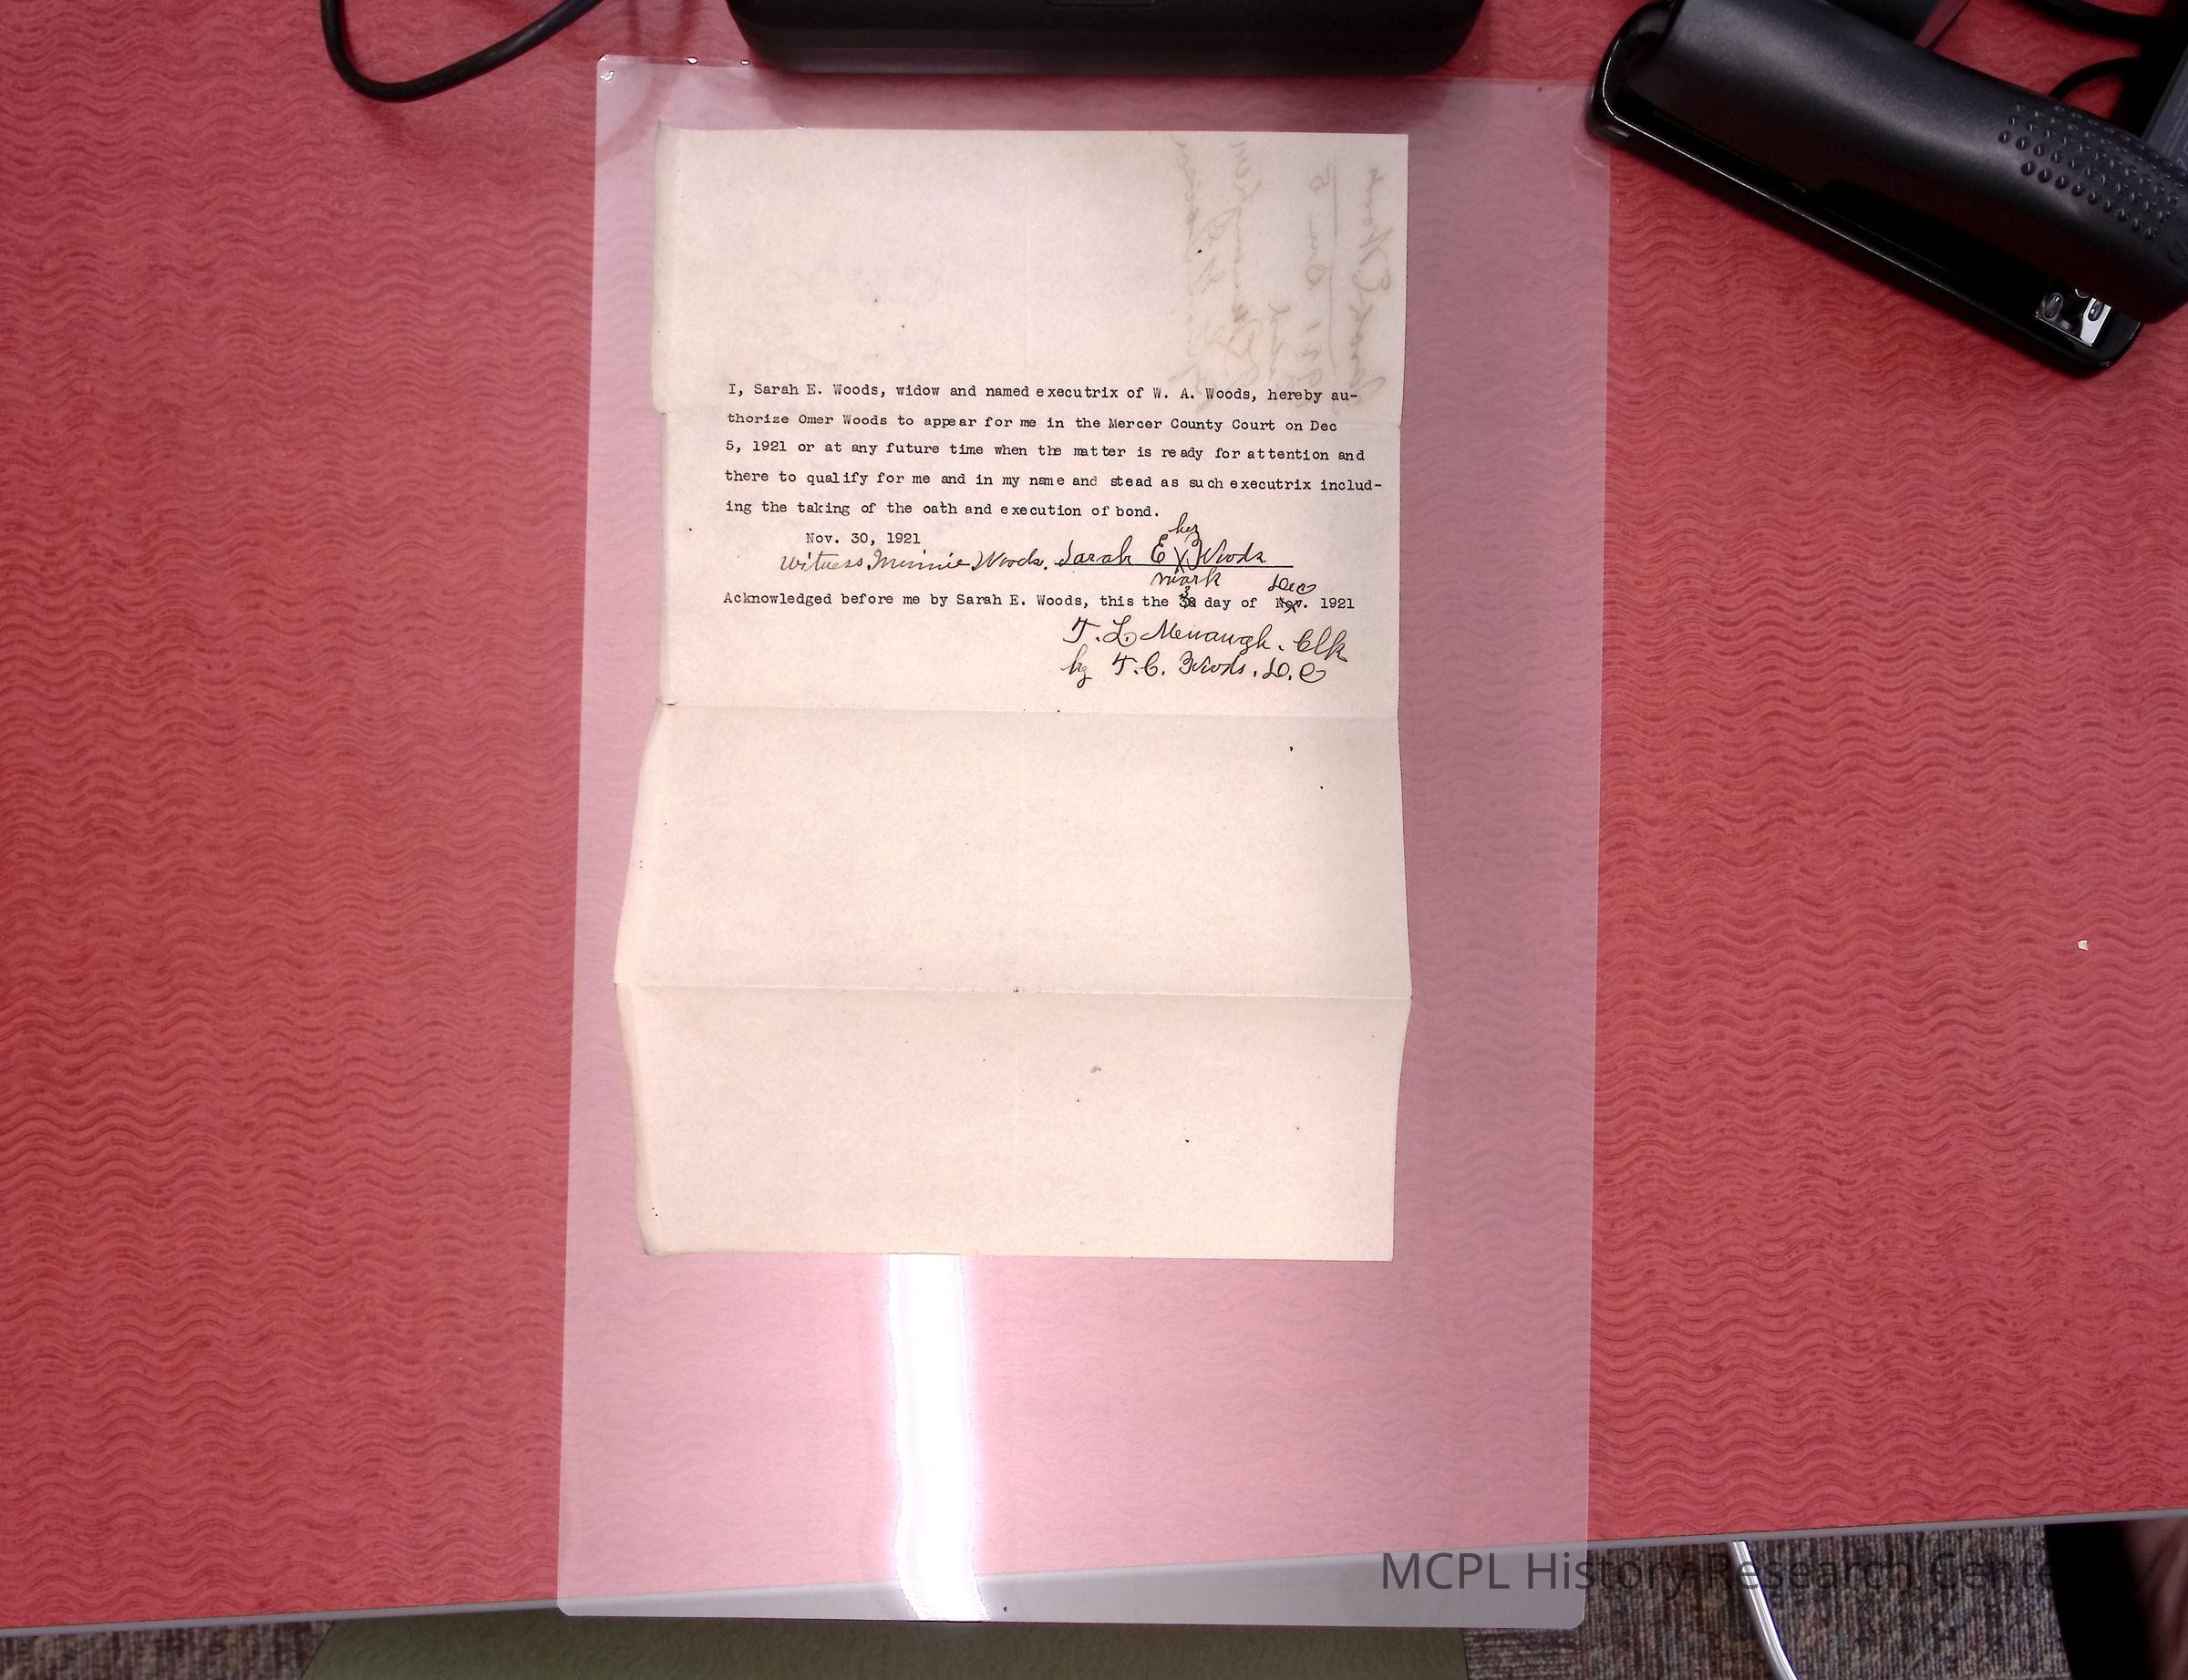 I, Sarah E. Woods, widow and named executrix of W. A. Woods, hereby au-
thorize Omer Woods to appear for me in the Mercer County Court on Dec
5, 1921 or at any future time when the matter is ready for attention and
there to qualify for me and in my name and stead as such executrix includ-
ing the taking of the oath and execution of bond.
her
Nov. 30, 1921
Witness Minnie Woods. Sarah E X Woods
mark
Dec
Acknowledged before me by Sarah E. Woods, this the 3 day of Nov. 1921
T. L. Menaugh. Clk
by T. C. Woods. D. C
MCPL History Research Cente